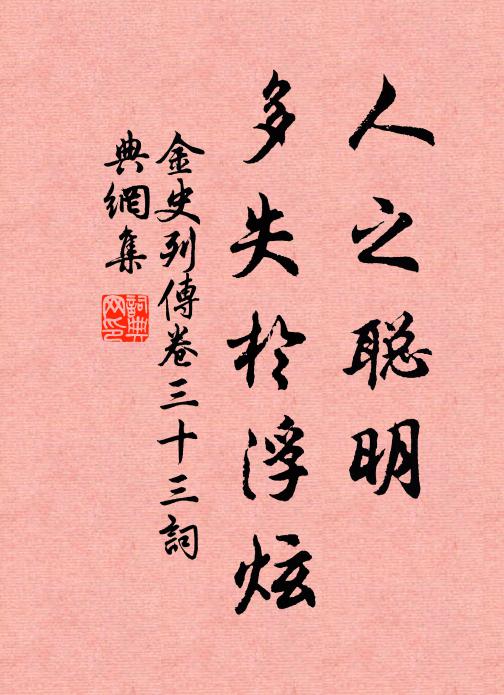 人之聪明
多失於浮炫
金史列傳卷三十三詞
典網集
詞典
网印